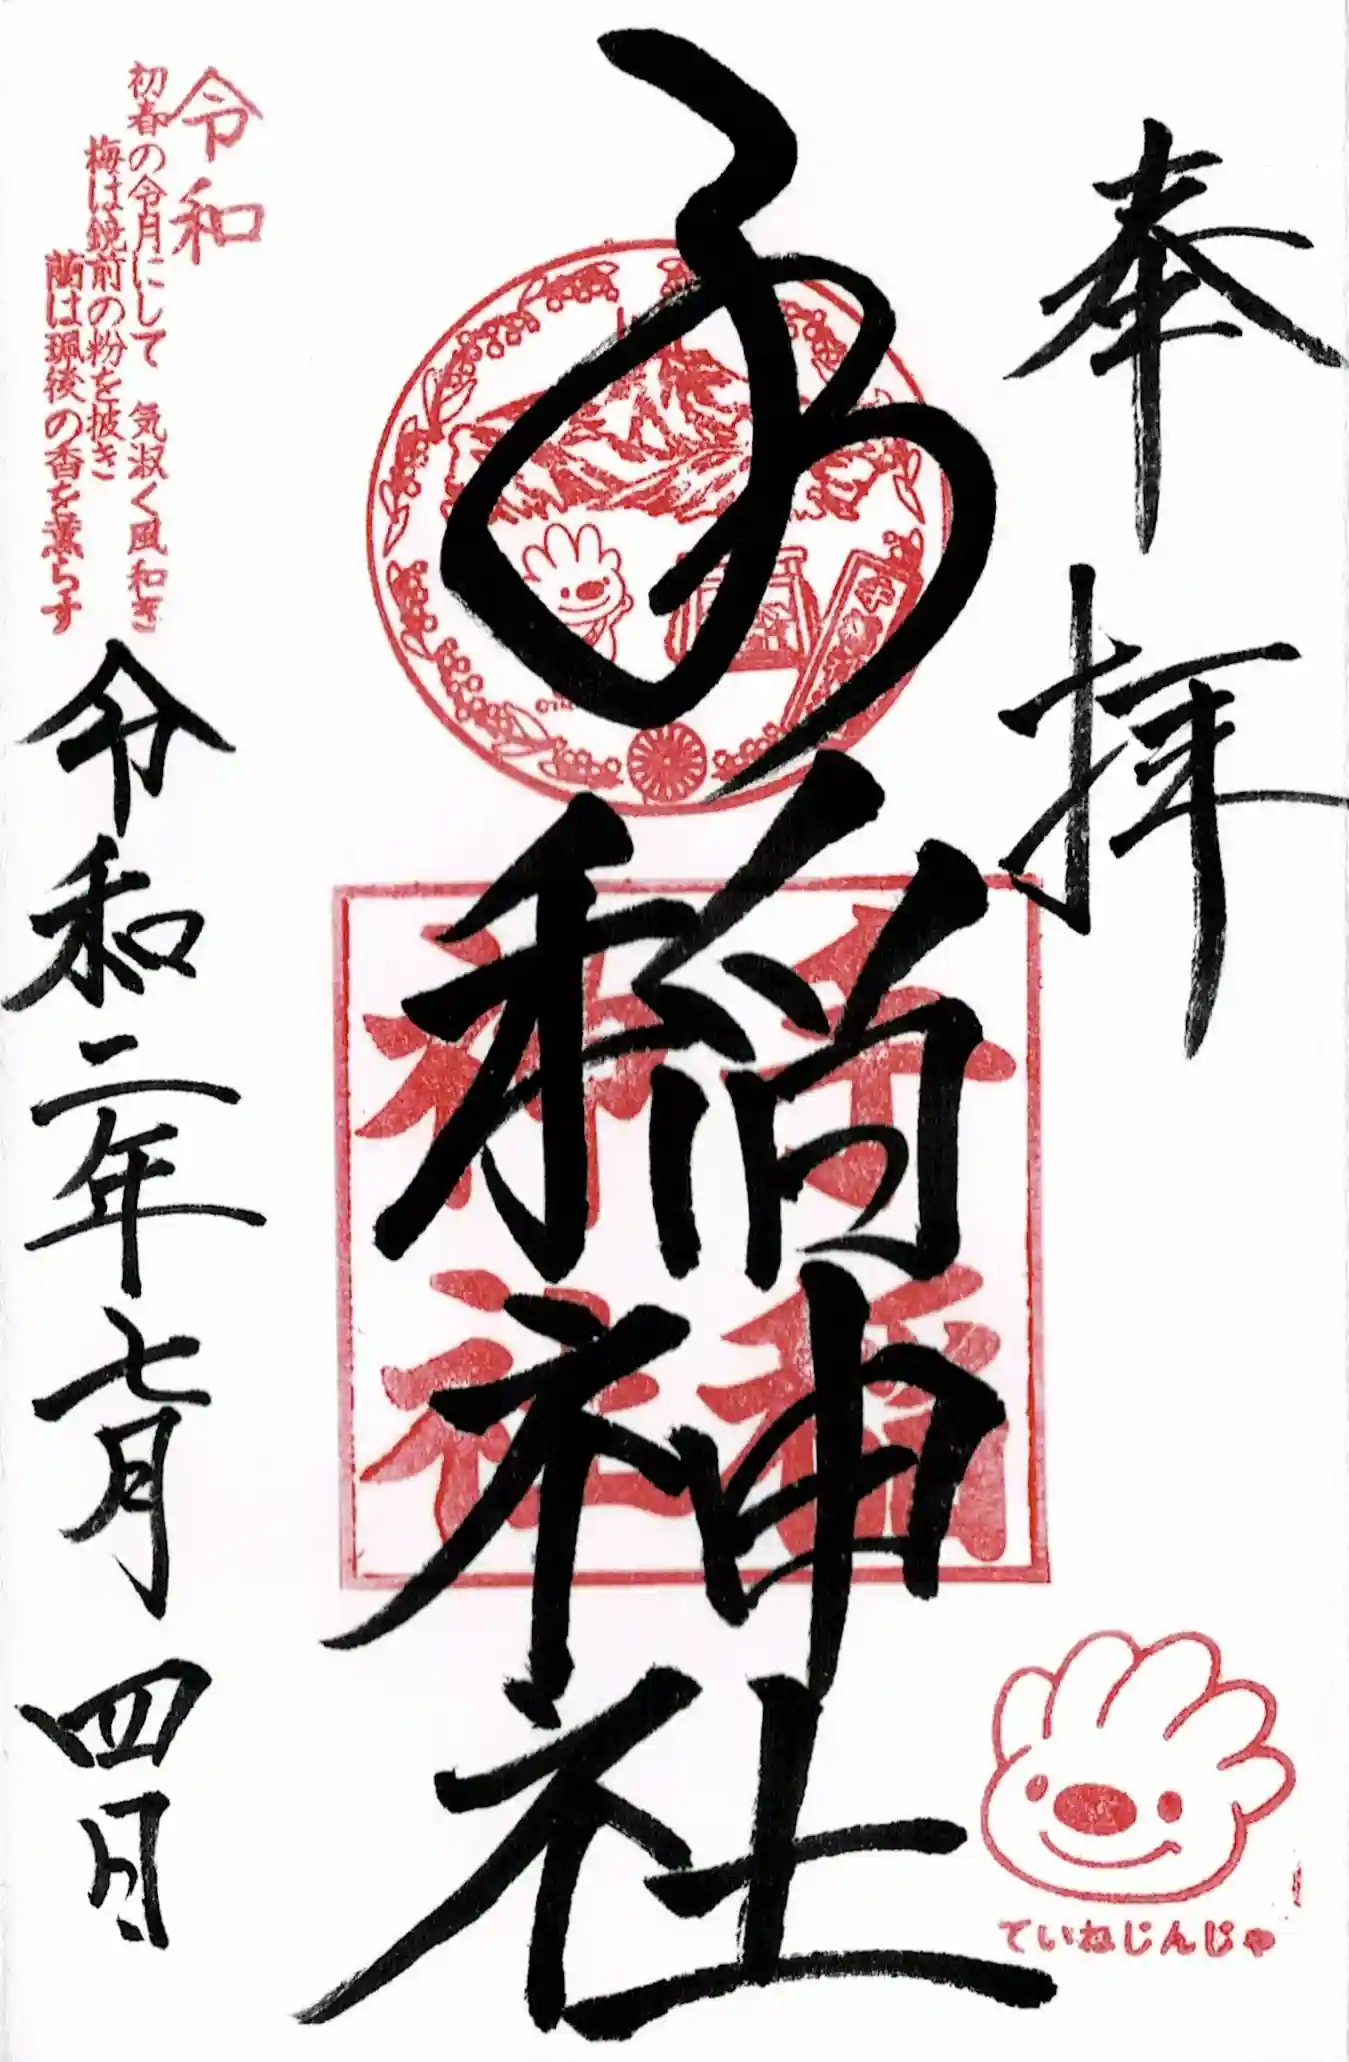 奉拝
手稲神社
手稲神社
ていねじんじゃ
令和
初春の令月にして 気淑く風和ぎ
梅は鏡前の粉を披き
蘭は珮後の香を薫らす
令和二年七月四日